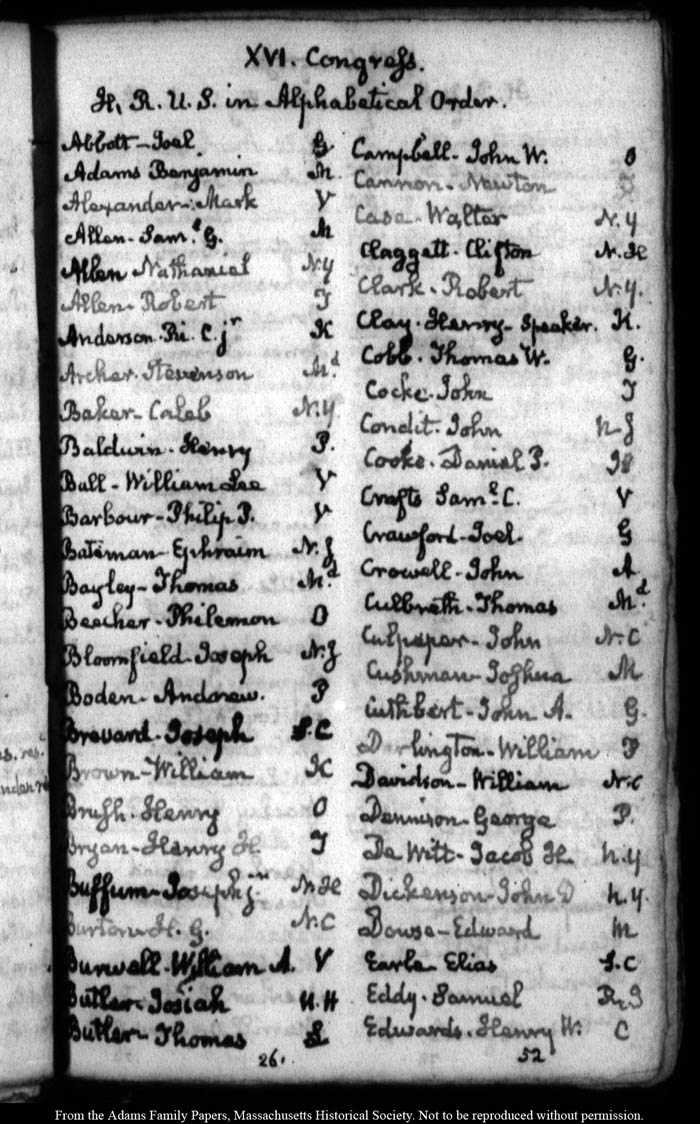 XVI. Congress.
H. R. U. S. in Alphabetical Order.
Abbott-Joel G
Adams Benjamin M.
Alexander-Mark V
Allen-Sam.l G. M
Allen Nathaniel N.Y
Allen-Robert T
Anderson-Ri. C. jr K
Archer-Stevenson M.d
Baker-Caleb N.Y
Baldwin-Henry P.
Ball-William Lee V
Barbour-Philip P. V
Bateman-Ephraim N.J
Bayley-Thomas M.d
Beecher-Philemon O
Bloomfield-Joseph N.J
Boden-Andrew. P
Brevard-Joseph S.C
Brown-William K
Brush-Henry O
Bryan-Henry H T
Buffum-Joseph jun N.H
Burton-H. G. N.C
Burwell-William A. V
Butler-Josiah N.H
Butler-Thomas L
26.
Campbell-John W. O
Cannon-Newton T
Case-Walter N.Y
Claggett-Clifton N.H
Clark-Robert N.Y.
Clay-Henry-Speaker. K.
Cobb-Thomas W. G.
Cocke-John T
Condit-John N-J
Cooke-Daniel P. Il
Crafts Sam.l C. V
Crawford-Joel. G
Crowell-John A
Culbreth-Thomas M.d
Culpeper-John N-C
Cushman-Joshua M
Cuthbert-John A. G.
Darlington-William P
Davidson-William N.C
Dennison-George P.
De Witt-Jacob H N.Y
Dickenson-John D N.Y.
Dowse-Edward M
Earle Elias S.C
Eddy-Samuel R.I
Edwards-Henry W. C
52
s. res.
From the Adams Family Papers, Massachusetts Historical Society. Not to be reproduced without permission.